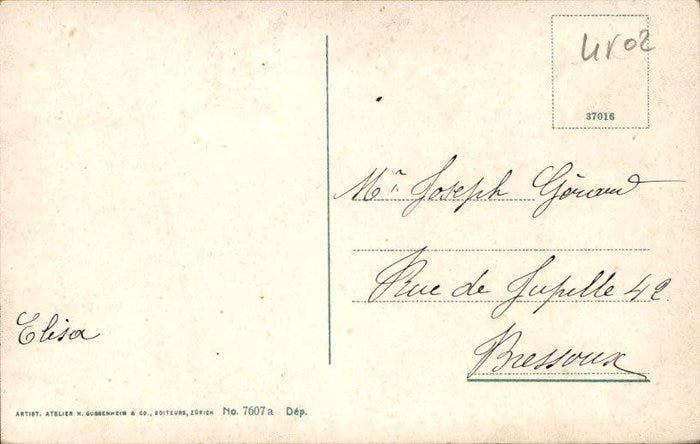 37016
Mr. Joseph Gérard
Rue de Jupille 42
Bressoux
Elisa
ARTIST. ATELIER H. GUGGENHEIM & CO., EDITEURS, ZÜRICH No. 7607a Dép.